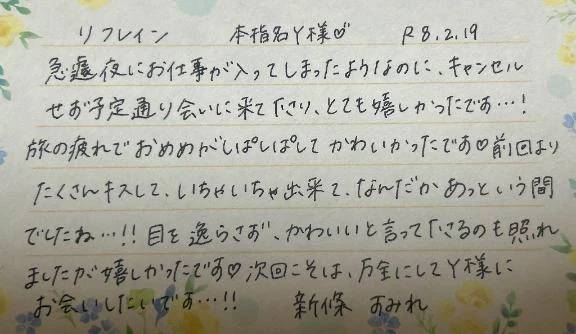 リフレイン 本指名Y様♡ R8.2.19
急遽夜にお仕事が入ってしまったようなのに、キャンセル
せず予定通り会いに来て下さり、とても嬉しかったです…！
旅の疲れでおめめがしぱしぱしてかわいかったです♡前回より
たくさんキスして、いちゃいちゃ出来て、なんだかあっという間
でしたね…！！目を逸らさず、かわいいと言って下さるのも照れ
ましたが嬉しかったです♡次回こそは、万全にしてY様に
お会いしたいです…！！ 新條 すみれ